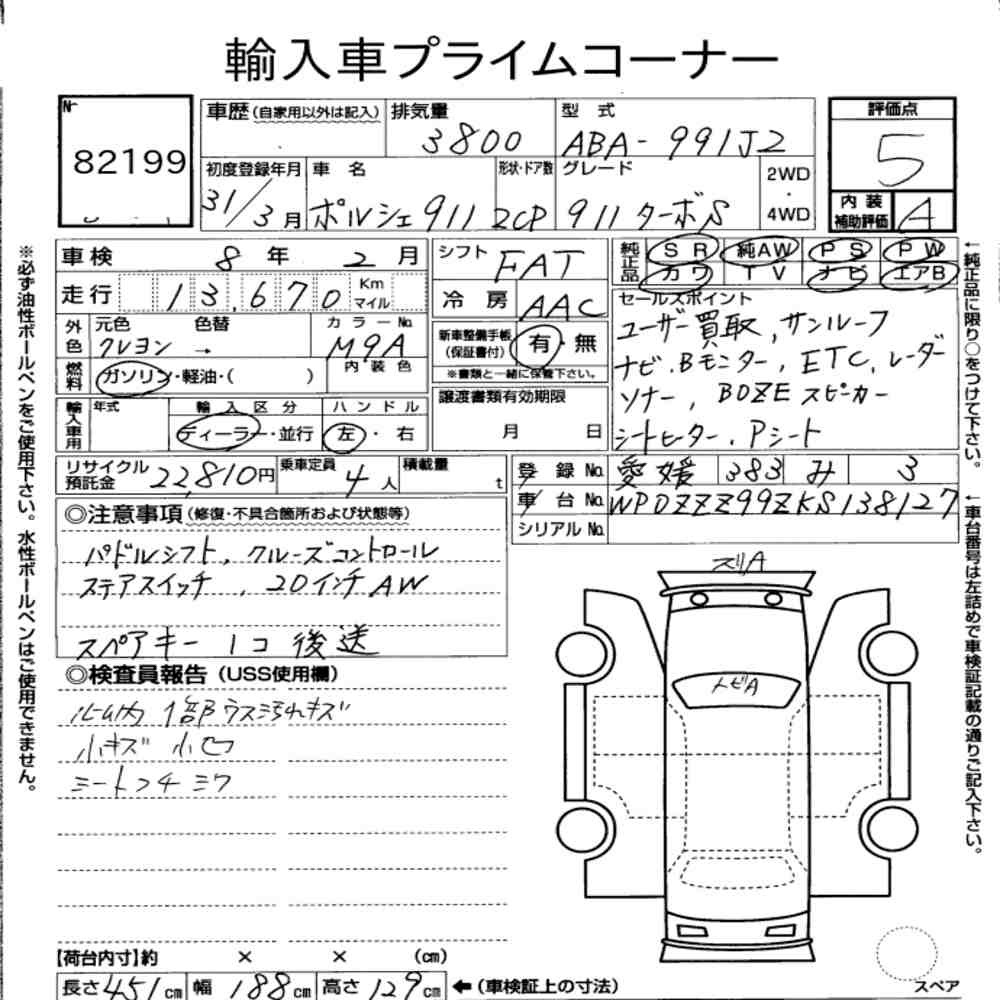 輸入車プライムコーナー
No 82199
車歴 (自家用以外は記入) 排気量 3800 型式 ABA-991J2
評価点 5
初度登録年月 31/3月 車名 ポルシェ911 形状・ドア数 2CP グレード 911ターボS 2WD・4WD
内装補助評価 A
車検 8年 2月
走行 13,670 Km マイル
外色 元色 クレヨン 色替 → カラーNo. M9A
内装色
燃料 ガソリン・軽油・( )
輸入車用 年式 輸入区分 ディーラー・並行 ハンドル 左・右
シフト FAT
冷房 AAC
新車整備手帳(保証書付) 有・無
※書類と一緒に保管下さい。
譲渡書類有効期限 月 日
純正品 SR 純AW PS PW
カワ TV ナビ エアB
セールスポイント
ユーザー買取,サンルーフ
ナビ.Bモニター,ETC,レーダー
ソナー,BOZEスピーカー
シートヒーター.Pシート
リサイクル預託金 22,810円 乗車定員 4人 積載量 t
登録No. 愛媛 383 み 3
車台No. WP0ZZZ99ZKS138127
シリアルNo.
◎注意事項 (修復・不具合箇所および状態等)
パドルシフト,クルーズコントロール
ステアスイッチ,20インチAW
スペアキー1コ後送
◎検査員報告 (USS使用欄)
1部ウス汚れキズ
小キズ 小凹
シートフチシワ
スリA
トビA
【荷台内寸】約 × × (cm)
長さ451cm 幅188cm 高さ129cm ←(車検証上の寸法)
スペア
※必ず油性ボールペンをご使用下さい。水性ボールペンはご使用できません。
←純正品に限り○をつけて下さい。
←車台番号は左詰めで車検証記載の通りご記入下さい。